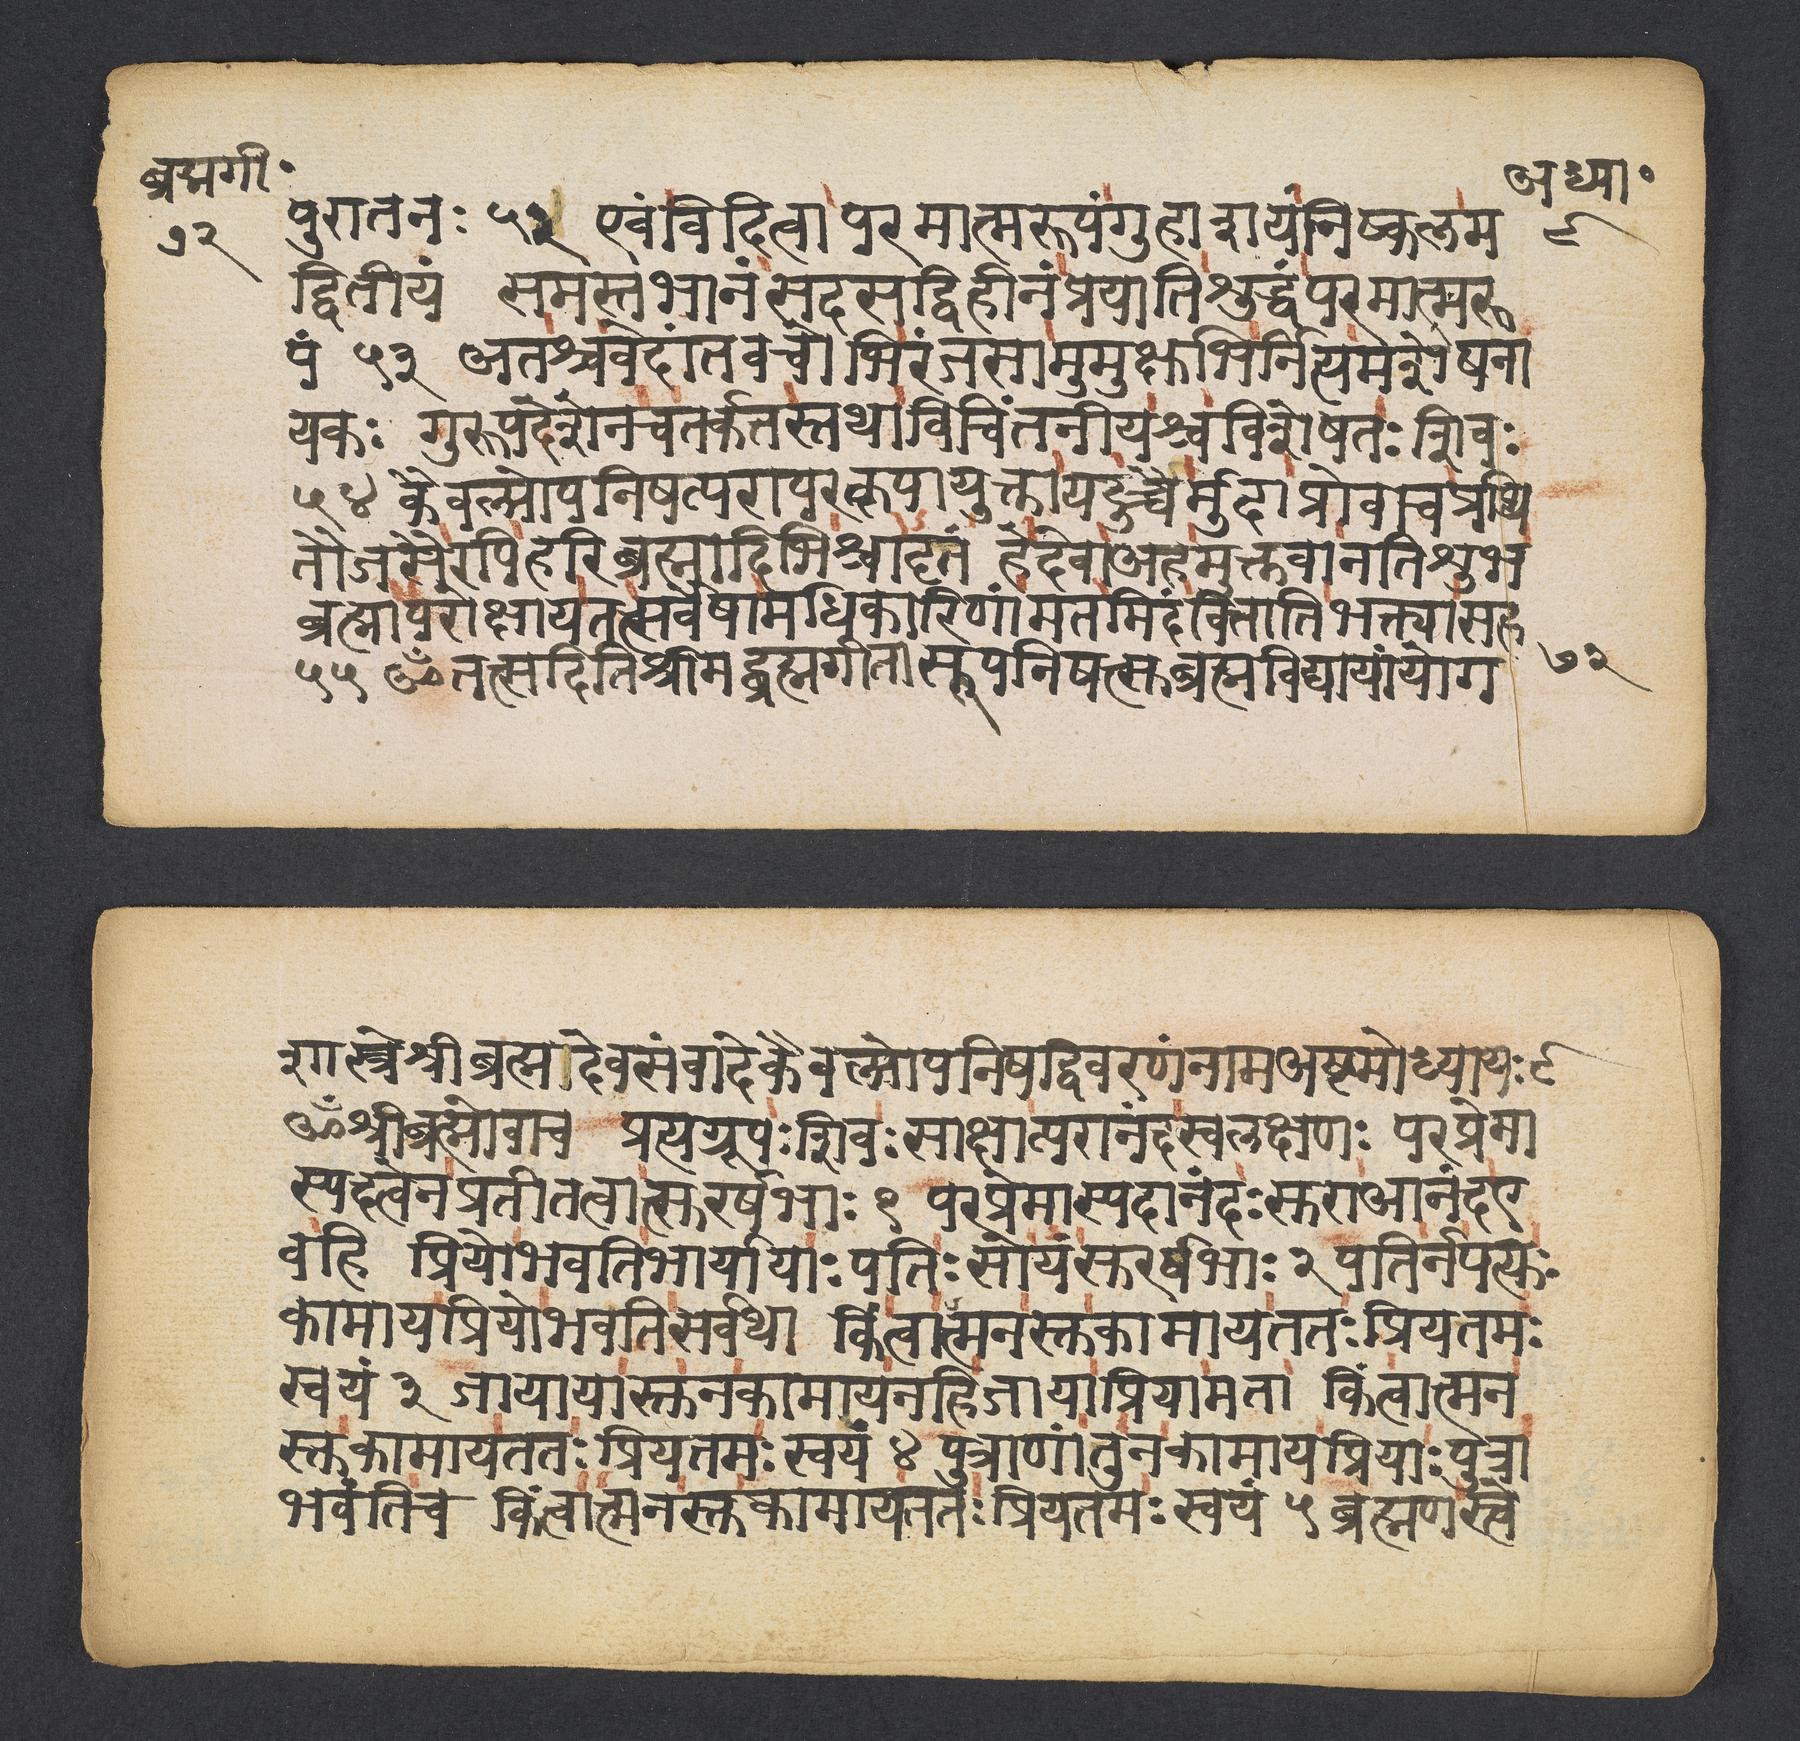 ब्रह्मगी॰
७२
अध्या॰
९
पुरातनः ५२ एवंविदित्वापरमात्मरूपंगुहाशयंनिष्कलम
द्वितीयं समस्तभानंसदसद्विहीनंप्रयातिशुद्धंपरमात्मरू
पं ५३ अतश्चवेदांतवचोभिरंजसामुमुक्षुभिर्नित्यमशेषना
यकः गुरूपदेशेनचतर्कतस्तथाविचिंतनीयश्चविशेषतः शिवः
५४ कैवल्योपनिषत्परापरकृपायुक्तायदुच्चैर्मुदाप्रोवाचप्रथि
तौजसैरपिहरिब्रह्मादिभिश्चादृतं हेदेवाअहमुक्तवानतिशुभ
ब्रह्मापरोक्षायतत्सर्वेषामधिकारिणांमतमिदंवित्तातिभक्त्यासह
५५ ॐतत्सदितिश्रीमद्ब्रह्मगीतासूपनिषत्सुब्रह्मविद्यायांयोग
७२
शास्त्रेश्रीब्रह्मादेवसंवादेकैवल्योपनिषद्विवरणंनामअष्टमोध्यायः ९
ॐश्रीब्रह्मोवाच प्रत्यग्रूपः शिवः साक्षात्परानंदस्वलक्षणः परप्रेमा
स्पदत्वेनप्रतीतत्वात्सुरर्षभाः १ परप्रेमास्पदानंदः सुराआनंदए
वहि प्रियोभवतिभार्यायाः पतिः सोयंसुरर्षभाः २ पतिर्नपत्युः
कामायप्रियोभवतिसर्वथा किंत्वात्मनस्तुकामायततः प्रियतमः
स्वयं ३ जायायास्तुनकामायनहिजायाप्रियामता किंत्वात्मन
स्तुकामायततः प्रियतमः स्वयं ४ पुत्राणांतुनकामायप्रियाः पुत्रा
भवंतिच किंत्वात्मनस्तुकामायततः प्रियतमः स्वयं ५ ब्रह्मणस्त्वे